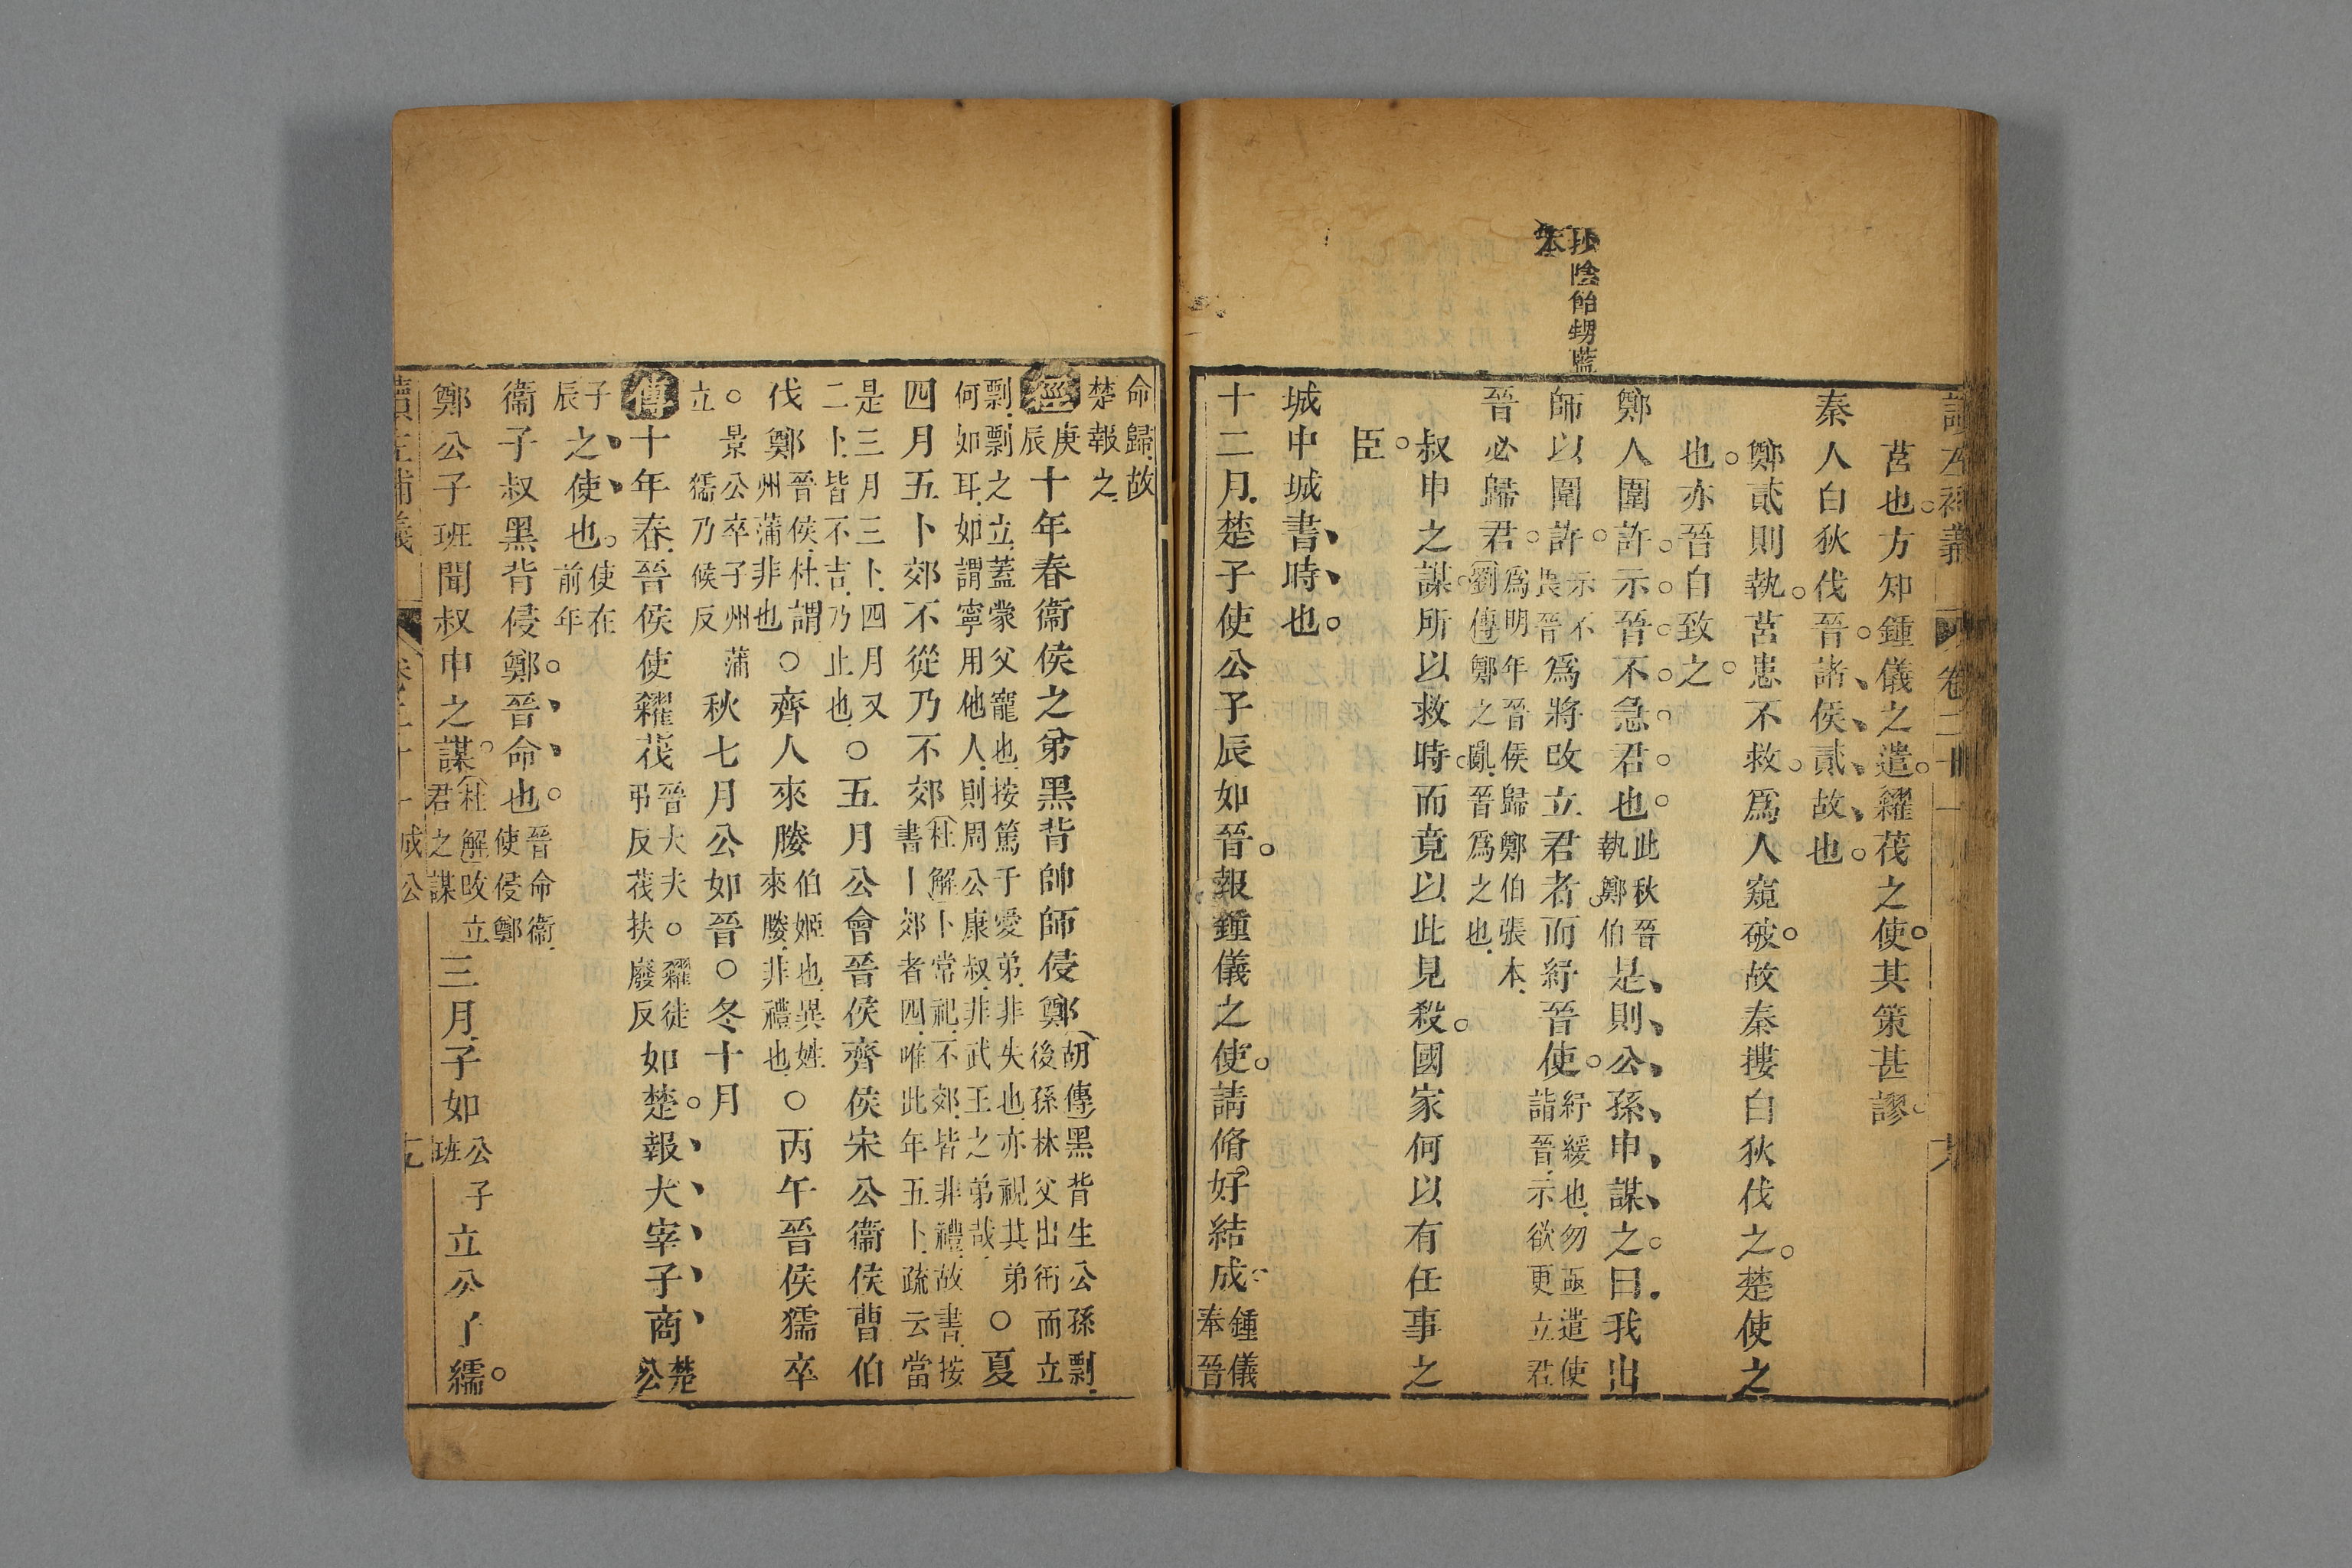 莒也方知鍾儀之遣糴茷之使其策甚謬
秦人白狄伐晉諸侯貳故也
鄭貳則執莒患不救爲人窺破故秦摟白狄伐之楚使之
也亦晉自致之
鄭人圍許示晉不急君也此秋晉執鄭伯是則公孫申謀之曰我出
師以圍許示不畏晉爲將改立君者而紓晉使紓緩也勿亟遣使詣晉示欲更立君
晉必歸君爲明年晉侯歸鄭伯張本劉傳鄭之亂晉爲之也
抄陰飴甥藍本
叔申之謀所以救時而竟以此見殺國家何以有任事之
臣
城中城書時也
十二月楚子使公子辰如晉報鍾儀之使請脩好結成鍾儀奉晉
命歸故楚報之
經庚辰十年春衞侯之弟黑背帥師侵鄭胡傳黑背生公孫剽後孫林父出衎而立
剽剽之立蓋蒙父寵也按篤于愛弟非失也亦視其弟何如耳如謂寧用他人則周公康叔非武王之弟哉○夏
四月五卜郊不從乃不郊杜解卜常祀不郊皆非禮故書按書卜郊者四唯此年五卜疏云當
是三月三卜四月又二卜皆不吉乃止也○五月公會晉侯齊侯宋公衞侯曹伯
伐鄭晉侯杜謂州蒲非也○齊人來媵伯姬也異姓來媵非禮也○丙午晉侯獳卒
○景公卒子州蒲立獳乃候反秋七月公如晉○冬十月
傳十年春晉侯使糴茷晉大夫○糴徒弔反茷扶廢反如楚報大宰子商楚公
子辰之使也使在前年
衞子叔黑背侵鄭晉命也晉命衞使侵鄭
鄭公子班聞叔申之謀杜解改立君之謀三月子如公子班立公子繻